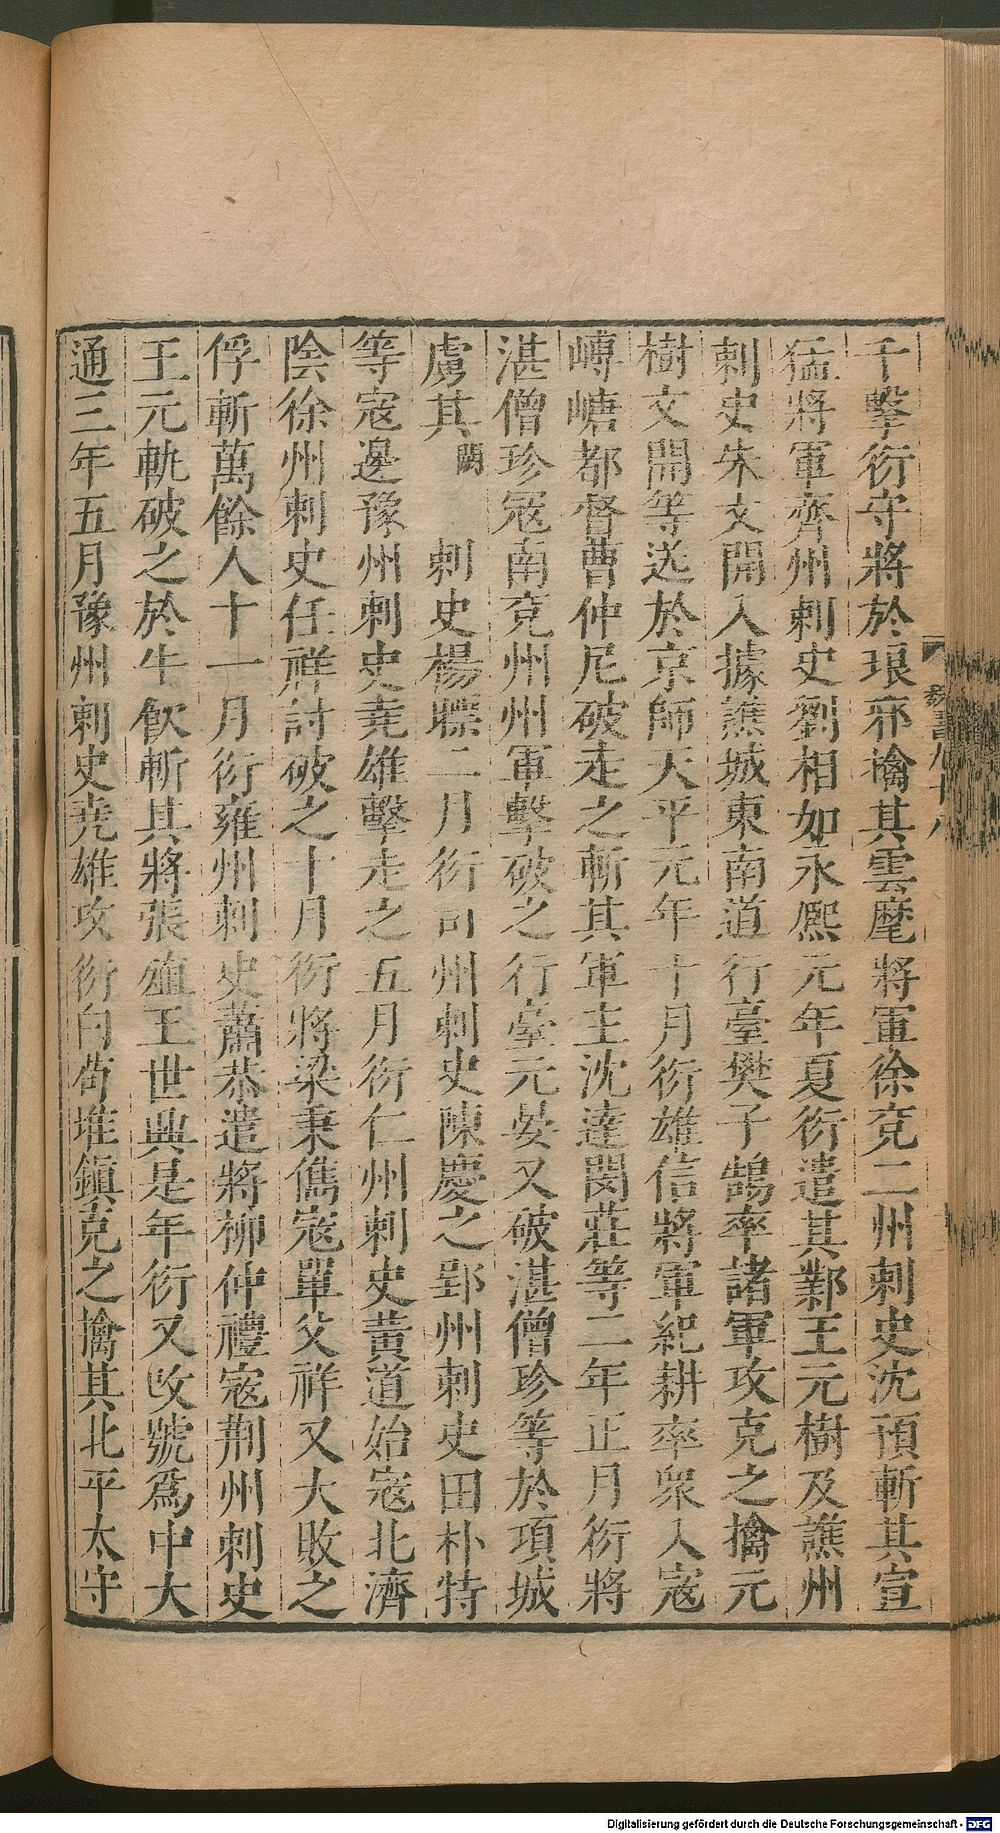 千擊衍守將於琅邪擒其雲麾將軍徐兗二州刺史沈預斬其宣
猛將軍齊州刺史劉相如永熙元年夏衍遣其鄴王元樹及譙州
刺史朱文開入據譙城東南道行臺樊子鵠率諸軍攻克之擒元
樹文開等送於京師天平元年十月衍雄信將軍紀耕率衆入寇
嶹塘都督曹仲尼破走之斬其軍主沈達閔莊等二年正月衍將
湛僧珍寇南兗州州軍擊破之行臺元晏又破湛僧珍等於項城
虜其闕刺史楊㯹二月衍司州刺史陳慶之郢州刺史田朴特
等寇邊豫州刺史堯雄擊走之五月衍仁州刺史黃道始寇北濟
陰徐州刺史任祥討破之十月衍將梁秉儁寇單父祥又大敗之
俘斬萬餘人十一月衍雍州刺史蕭恭遣將柳仲禮寇荆州刺史
王元軌破之於牛飮斬其將張殖王世興是年衍又攺號爲中大
通三年五月豫州刺史堯雄攻衍白苟堆鎮克之擒其北平太守
魏書九十八
Digitalisierung gefördert durch die Deutsche Forschungsgemeinschaft - DFG